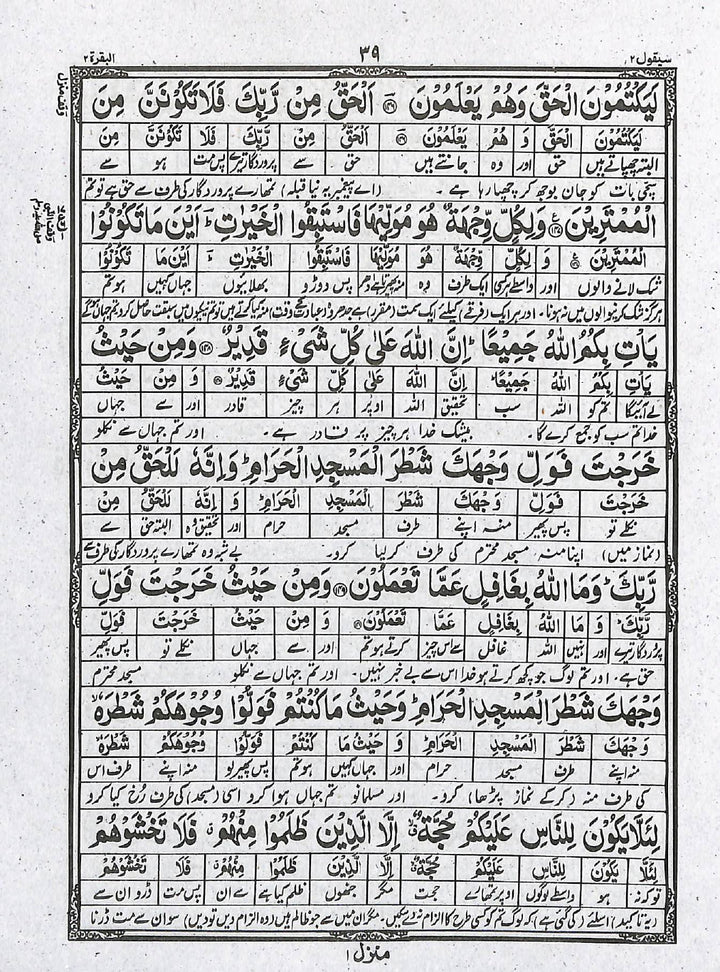 سیقول ۲
۳۹
البقرۃ ۲
لَيَكْتُمُونَ الْحَقَّ وَهُمْ يَعْلَمُونَ ﴿۱۴۶﴾ اَلْحَقُّ مِنْ رَّبِّكَ فَلَا تَكُوْنَنَّ مِنَ
لَيَكْتُمُوْنَ الْحَقَّ وَ هُمْ يَعْلَمُوْنَ اَلْحَقُّ مِنْ رَّبِّكَ فَلَا تَكُوْنَنَّ مِنَ
البتہ چھپاتے ہیں حق اور وہ جانتے ہیں حق سے پروردگار تیرے پس مت ہو سے
سچی بات کو جان بوجھ کر چھپا رہا ہے ۔ (اے پیغمبر یہ نیا قبلہ) تمہارے پروردگار کی طرف سے حق ہے تو تم
الْمُمْتَرِيْنَ ﴿۱۴۷﴾ وَلِكُلٍّ وِّجْهَةٌ هُوَ مُوَلِّيْهَا فَاسْتَبِقُوا الْخَيْرٰتِ ؕ اَيْنَ مَا تَكُوْنُوْا
الْمُمْتَرِيْنَ وَ لِكُلٍّ وِّجْهَةٌ هُوَ مُوَلِّيْهَا فَاسْتَبِقُوا الْخَيْرٰتِ ؕ اَيْنَ مَا تَكُوْنُوْا
شک لانے والوں اور واسطے ہر کسی ایک طرف وہ پس دوڑو بھلائیوں جہاں کہیں ہو تم
ہرگز شک کرنیوالوں میں نہ ہونا ۔ اور ہر ایک (فرقے) کیلئے ایک سمت (مقرر) ہے جدھر وہ (عبادت کے وقت) منہ کیا کرتے ہیں تو تم نیکیوں میں سبقت حاصل کرو تم جہاں
يَاْتِ بِكُمُ اللّٰهُ جَمِيْعًا ؕ اِنَّ اللّٰهَ عَلٰى كُلِّ شَيْءٍ قَدِيْرٌ ﴿۱۴۸﴾ وَمِنْ حَيْثُ
يَاْتِ بِكُمُ اللّٰهُ جَمِيْعًا ؕ اِنَّ اللّٰهَ عَلٰى كُلِّ شَيْءٍ قَدِيْرٌ وَ مِنْ حَيْثُ
لے آئیگا تم کو اللہ سب تحقیق اللہ اوپر ہر چیز قادر اور سے جہاں
خدا تم سب کو جمع کرے گا ۔ بیشک خدا ہر چیز پر قادر ہے ۔ اور تم جہاں سے نکلو
خَرَجْتَ فَوَلِّ وَجْهَكَ شَطْرَ الْمَسْجِدِ الْحَرَامِ ؕ وَاِنَّهٗ لَلْحَقُّ مِنْ
خَرَجْتَ فَوَلِّ وَجْهَكَ شَطْرَ الْمَسْجِدِ الْحَرَامِ ؕ وَ اِنَّهٗ لَلْحَقُّ مِنْ
نکلے تو پس پھیر منہ اپنے طرف مسجد حرام اور تحقیق وہ البتہ حق سے
(نماز میں) اپنا منہ مسجد محترم کی طرف کر لیا کرو ۔ بے شبہ وہ تمہارے پروردگار کی طرف سے
رَّبِّكَ ؕ وَمَا اللّٰهُ بِغَافِلٍ عَمَّا تَعْمَلُوْنَ ﴿۱۴۹﴾ وَمِنْ حَيْثُ خَرَجْتَ فَوَلِّ
رَّبِّكَ ؕ وَ مَا اللّٰهُ بِغَافِلٍ عَمَّا تَعْمَلُوْنَ وَ مِنْ حَيْثُ خَرَجْتَ فَوَلِّ
پروردگار تیرے اور نہیں اللہ غافل سے اس چیز کرتے ہو تم اور سے جہاں نکلے تو پس پھیر
حق ہے ۔ اور تم لوگ جو کچھ کرتے ہو خدا اس سے بے خبر نہیں ۔ اور تم جہاں سے نکلو مسجد محترم
وَجْهَكَ شَطْرَ الْمَسْجِدِ الْحَرَامِ ؕ وَحَيْثُ مَا كُنْتُمْ فَوَلُّوْا وُجُوْهَكُمْ شَطْرَهٗ ۙ
وَجْهَكَ شَطْرَ الْمَسْجِدِ الْحَرَامِ ؕ وَ حَيْثُ مَا كُنْتُمْ فَوَلُّوْا وُجُوْهَكُمْ شَطْرَهٗ
منہ اپنے طرف مسجد حرام اور جہاں کہیں ہو تم پس پھیر لو منہ اپنے طرف اس
کی طرف منہ (کر کے نماز پڑھا) کرو ۔ اور مسلمانو تم جہاں ہوا کرو اسی (مسجد) کی طرف رُخ کیا کرو
لِئَلَّا يَكُوْنَ لِلنَّاسِ عَلَيْكُمْ حُجَّةٌ ۙ اِلَّا الَّذِيْنَ ظَلَمُوْا مِنْهُمْ ۗ فَلَا تَخْشَوْهُمْ
لِئَلَّا يَكُوْنَ لِلنَّاسِ عَلَيْكُمْ حُجَّةٌ اِلَّا الَّذِيْنَ ظَلَمُوْا مِنْهُمْ فَلَا تَخْشَوْهُمْ
تو کہ نہ ہو واسطے لوگوں اوپر تمہارے حجت مگر جنھوں ظلم کیا ہے سے ان پس مت ڈرو ان سے
(یہ تاکید) اسلئے (کی گئی ہے) کہ لوگ تم کو کسی طرح کا الزام نہ دے سکیں ۔ مگر ان میں سے جو ظالم ہیں (وہ الزام دیں تو دیں) سو ان سے مت ڈرنا
منزل ۱